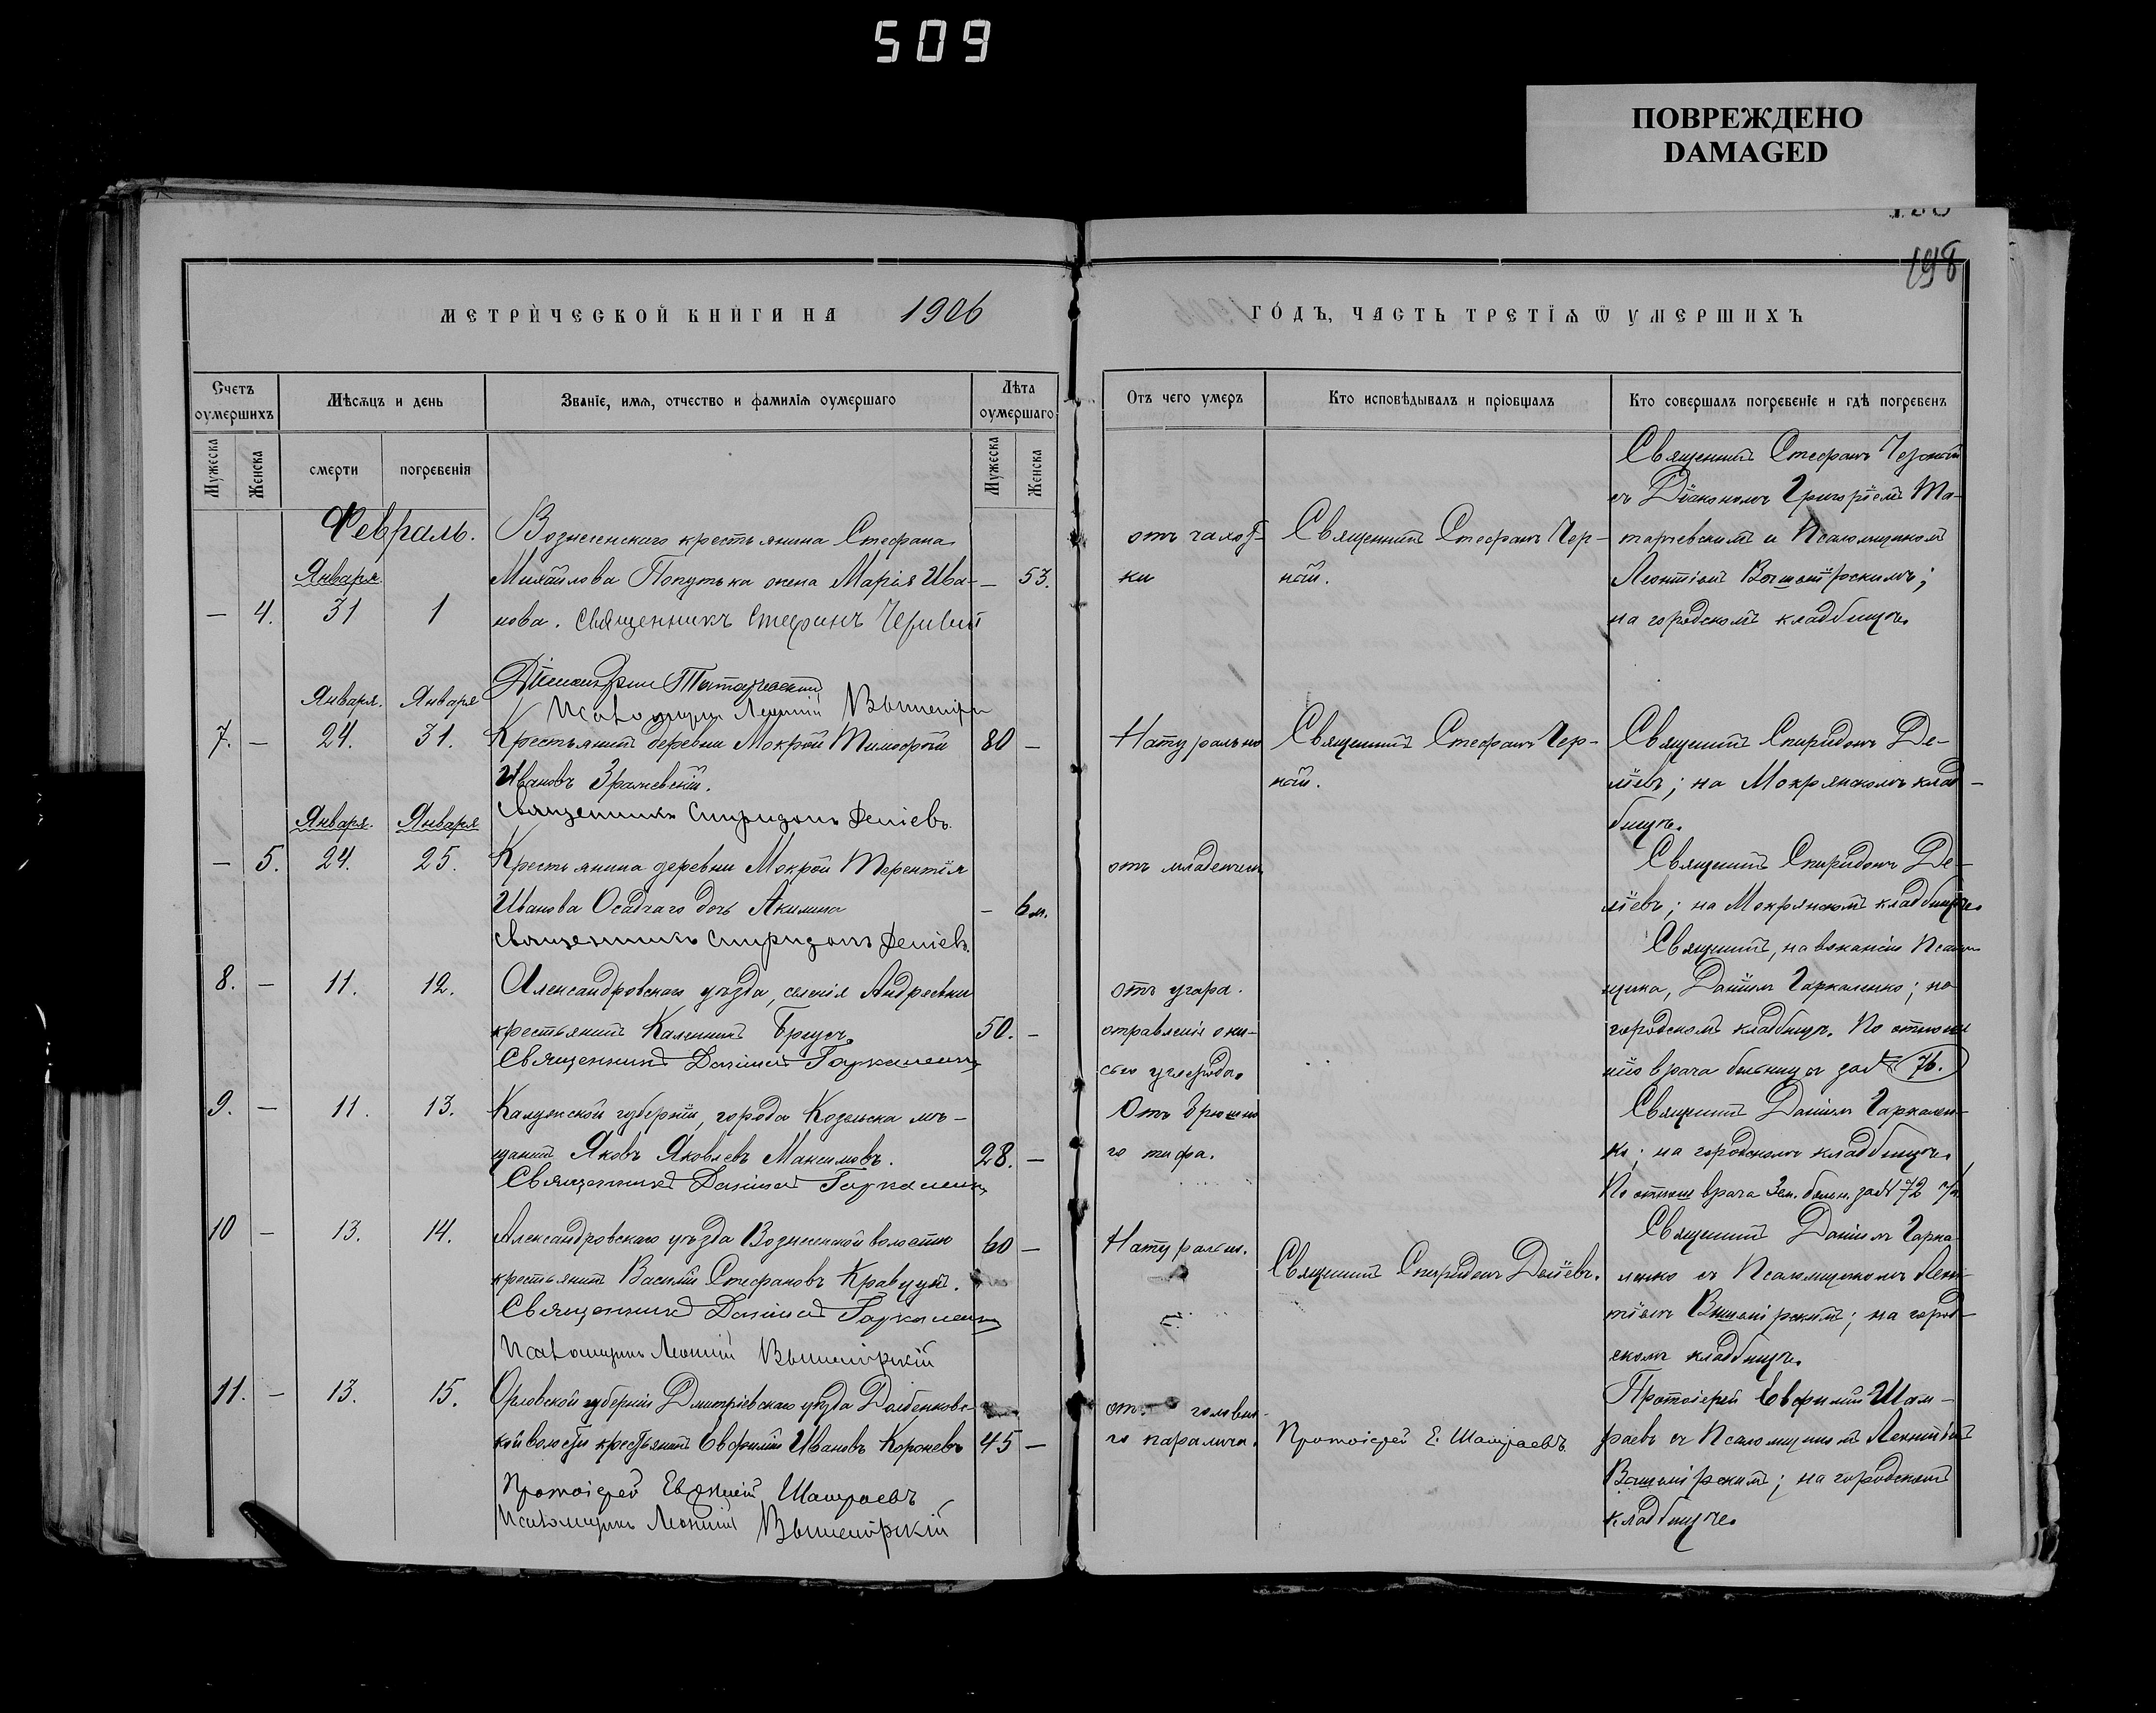 509
ПОВРЕЖДЕНО
DAMAGED
198
МЕТРИЧЕСКОЙ КНИГИ НА 1906
ГОДЪ, ЧАСТЬ ТРЕТІЯ Ѿ УМЕРШИХЪ
Счетъ оумершихъ
Мѣсяцъ и день
Званіе, имя, отчество и фамилія оумершаго
Лѣта оумершаго
Отъ чего умеръ
Кто исповѣдывалъ и пріобщалъ
Кто совершалъ погребеніе и гдѣ погребенъ
Мужеска
Женска
смерти
погребенія
Мужеска
Женска
Февраль.
Января
— 4. 31 1
Вознесенскаго крестьянина Стефана
Михайлова Попутька жена Марія Ива-
нова. Священникъ Стефанъ Черный
— 53.
отъ чахот-
ки
Священникъ Стефанъ Чер-
ный.
Священникъ Стефанъ Черный
съ Діакономъ Григоріемъ Та-
тарчевскимъ и Псаломщикомъ
Леонтіемъ
на городскомъ кладбищѣ.
Татарчевскій
Псаломщикъ Леонтій
Января. Января
7. — 24. 31.
Крестьянинъ деревни Мокрой Тимофей
Ивановъ Зражевскій.
Священникъ Спиридонъ Деліевъ.
80 —
Натурально
Священникъ Стефанъ Чер-
ный.
Священникъ Спиридонъ Де-
ліевъ; на Мокрянскомъ клад-
бищѣ.
Января. Января
— 5. 24. 25.
Крестьянина деревни Мокрой Терентія
Иванова Осадчаго дочь Акилина
Священникъ Спиридонъ Деліевъ.
— 6 м.
отъ младенчес
Священникъ Спиридонъ Де-
ліевъ; на Мокрянскомъ кладбищѣ.
8. — 11. 12.
Александровскаго уѣзда, селенія Андреевки
крестьянинъ Калинникъ Брусъ.
Священникъ Даніилъ Гаркаленко
50. —
отъ угара.
отравленія оки-
сью углерода.
Священникъ, на вакансіи Псалом-
щика, Даніилъ Гаркаленко; на
городскомъ кладбищѣ. По отноше-
нію врача больницы за № 76.
9. — 11. 13.
Калужской губерніи, города Козельска мѣ-
щанинъ Яковъ Яковлевъ Максимовъ.
Священникъ Даніилъ Гаркаленко
28. —
Отъ брюшно
го тифа.
Священникъ Даніилъ Гаркален-
ко; на городскомъ кладбищѣ.
По отнош врача Зем. больн. за № 72
10 — 13. 14.
Александровскаго уѣзда Вознесенской волости
крестьянинъ Василій Стефановъ Кравцунъ.
Священникъ Даніилъ Гаркаленко
Псаломщикъ Леонтій Вышемірскій
60 —
Натуральн.
Священникъ Спиридонъ Деліевъ.
Священникъ Даніилъ Гарка-
ленко съ Псаломщикомъ Леон-
тіемъ Вышемірскимъ; на город-
скомъ кладбищѣ.
11. — 13. 15.
Орловской губерніи Дмитріевскаго уѣзда Долбенковс-
кой волости крестьянинъ Евфимій Ивановъ Короневъ
Протоіерей Евфимій Шамраевъ
Псаломщикъ Леонтій Вышемірскій
45 —
отъ головно-
го паралича.
Протоіерей Е. Шамраевъ
Протоіерей Евфимій Шам-
раевъ съ Псаломщикомъ Леонтіемъ
Вышемірскимъ; на городскомъ
кладбищѣ.